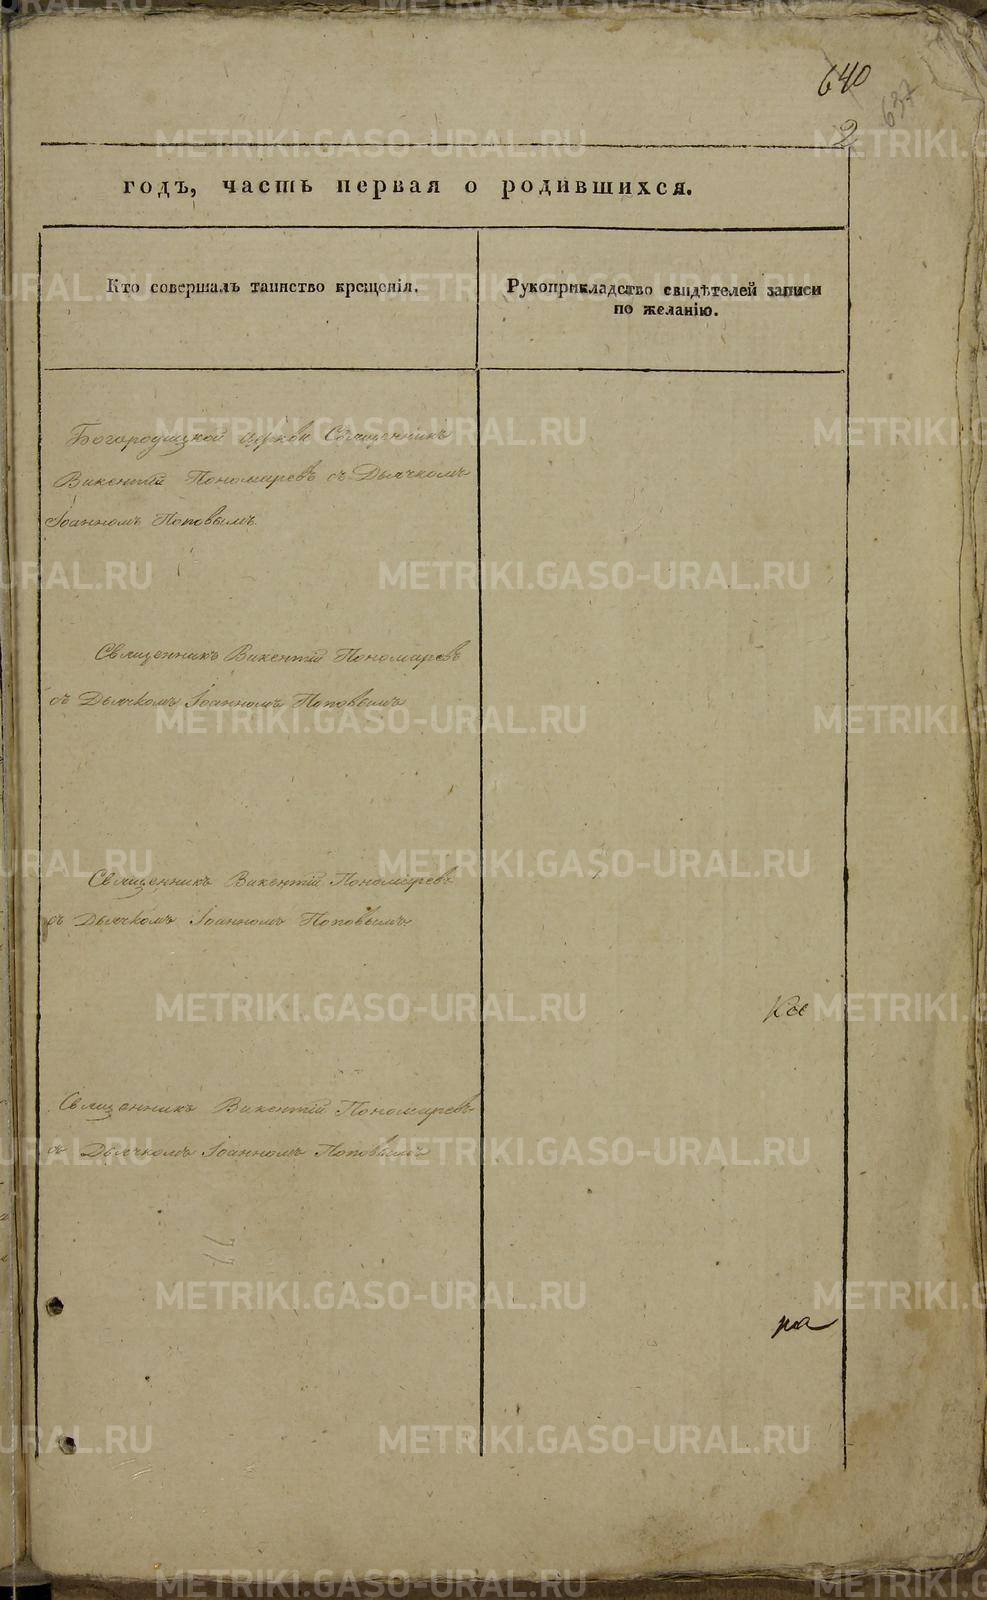 640
637
2
годъ, часть первая о родившихся.
Кто совершалъ таинство крещенія.
Рукоприкладство свидѣтелей записи
по желанію.
Богородицкой церкви Священникъ
Викентій Пономаревъ съ Дьячкомъ
Іоанномъ Поповымъ
Священникъ Викентій Пономаревъ
съ Дьячкомъ Іоанномъ Поповымъ
Священникъ Викентій Пономаревъ
съ Дьячкомъ Іоанномъ Поповымъ
Священникъ Викентій Пономаревъ
съ Дьячкомъ Іоанномъ Поповымъ
на
METRIKI.GASO-URAL.RU